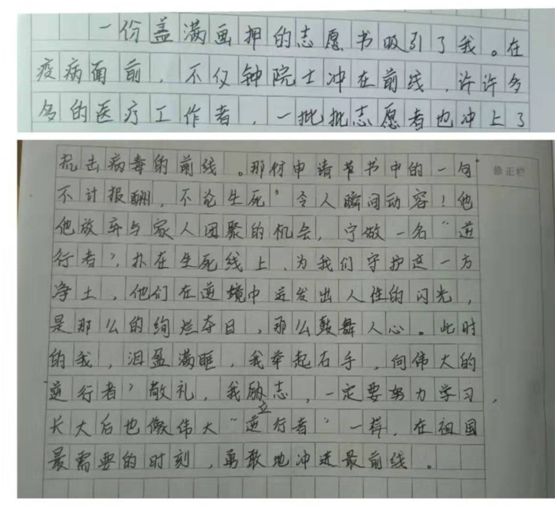 一份盖满画押的志愿书吸引了我。在
疫病面前，不仅钟院士冲在前线，许许多
多的医疗工作者，一批批志愿者也冲上了
抗击病毒的前线。那份申请书中的一句“
不计报酬，不论生死”令人瞬间动容！他
他放弃与家人团聚的机会，宁做一名“逆
行者”，扑在生死线上，为我们守护这一方
净土，他们在逆境中迸发出人性的闪光，
是那么的绚烂夺目，那么鼓舞人心。此时
的我，泪盈满眶，我举起右手，向伟大的
“逆行者”敬礼，我励志，一定要努力学习，
长大后也像伟大“逆行者”一样，在祖国
最需要的时刻，勇敢地冲进最前线。
修正栏